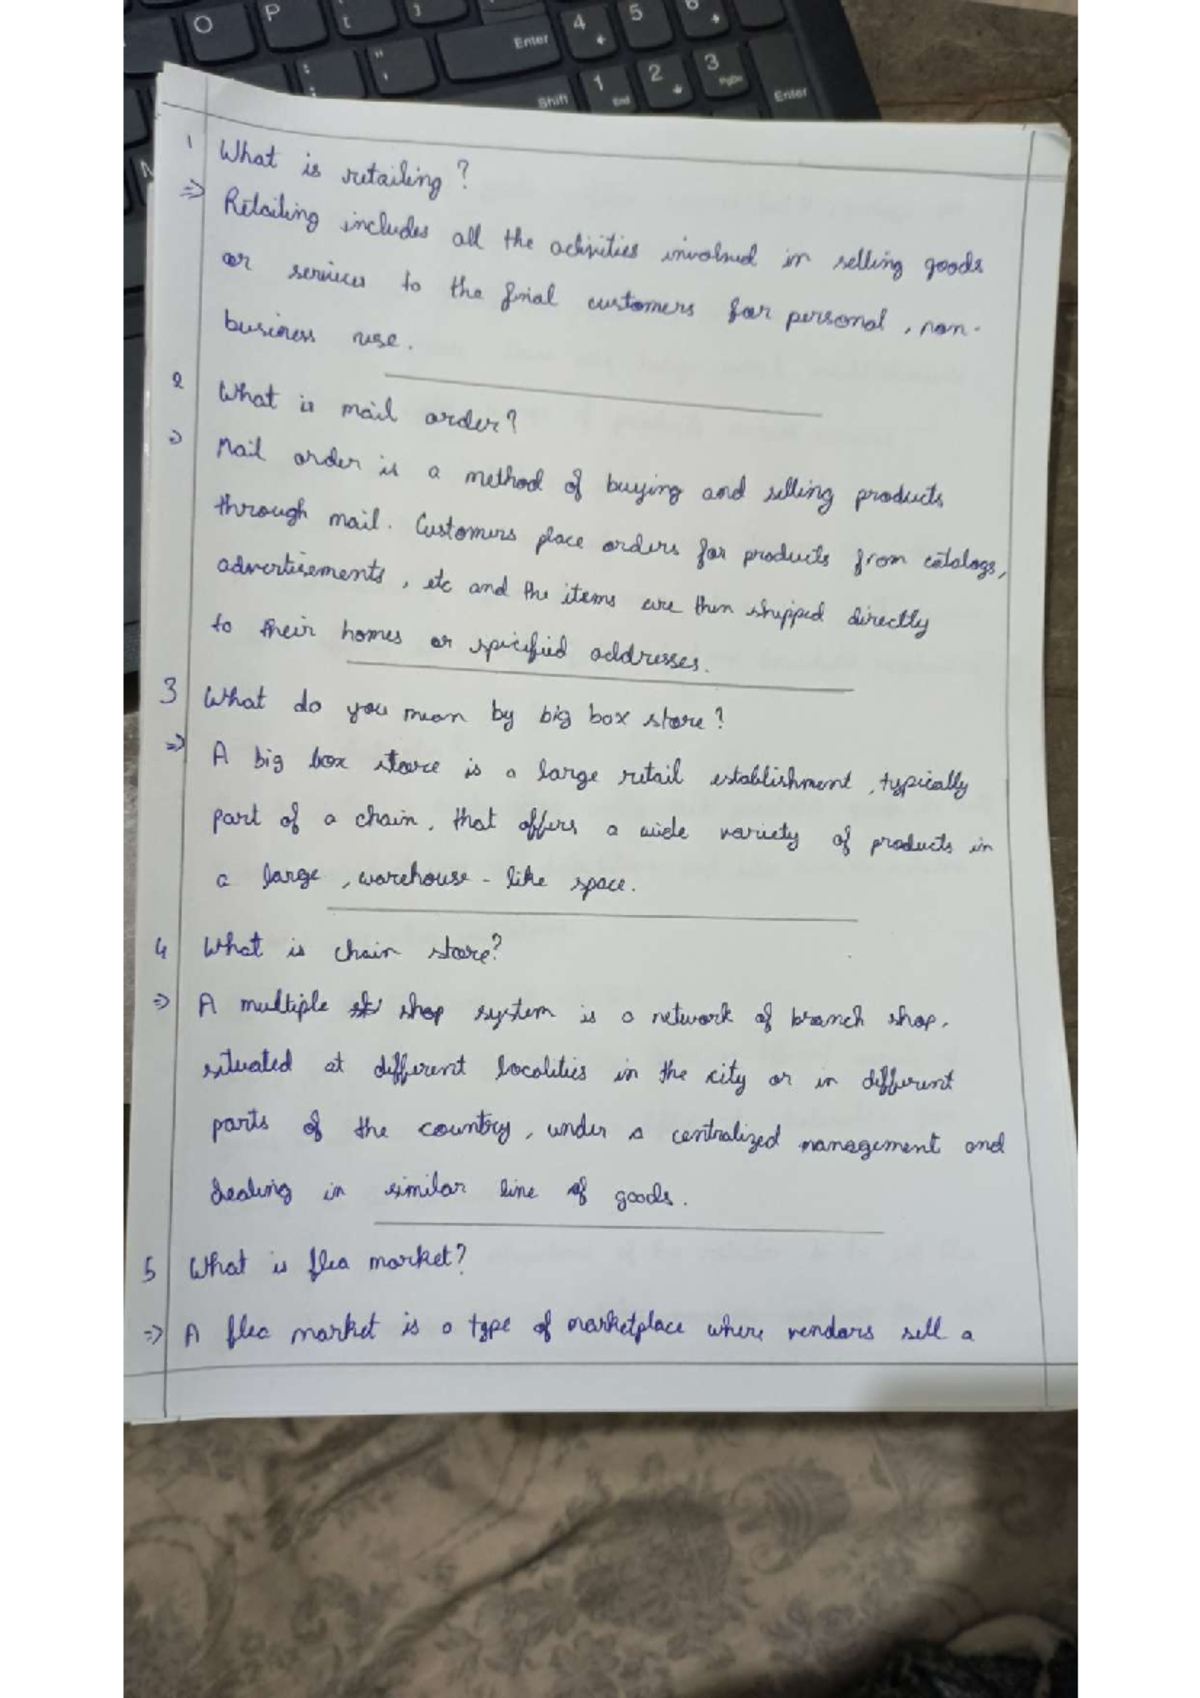 O
P
[
4
5
6
Enter
1
End
2
3
PgDn
Shift
Enter
1 What is retailing?
=> Retailing includes all the activities involved in selling goods
or services to the final customers for personal, non-
business use.
2 What is mail order?
=> Mail order is a method of buying and selling products
through mail. Customers place orders for products from catalogs,
advertisements, etc and the items are then shipped directly
to their homes or specified addresses.
3 What do you mean by big box store?
=> A big box store is a large retail establishment, typically
part of a chain, that offers a wide variety of products in
a large, warehouse-like space.
4 What is chain store?
=> A multiple shop system is a network of branch shop,
situated at different localities in the city or in different
parts of the country, under a centralized management and
dealing in similar line of goods.
5 What is flea market?
=> A flea market is a type of marketplace where vendors sell a